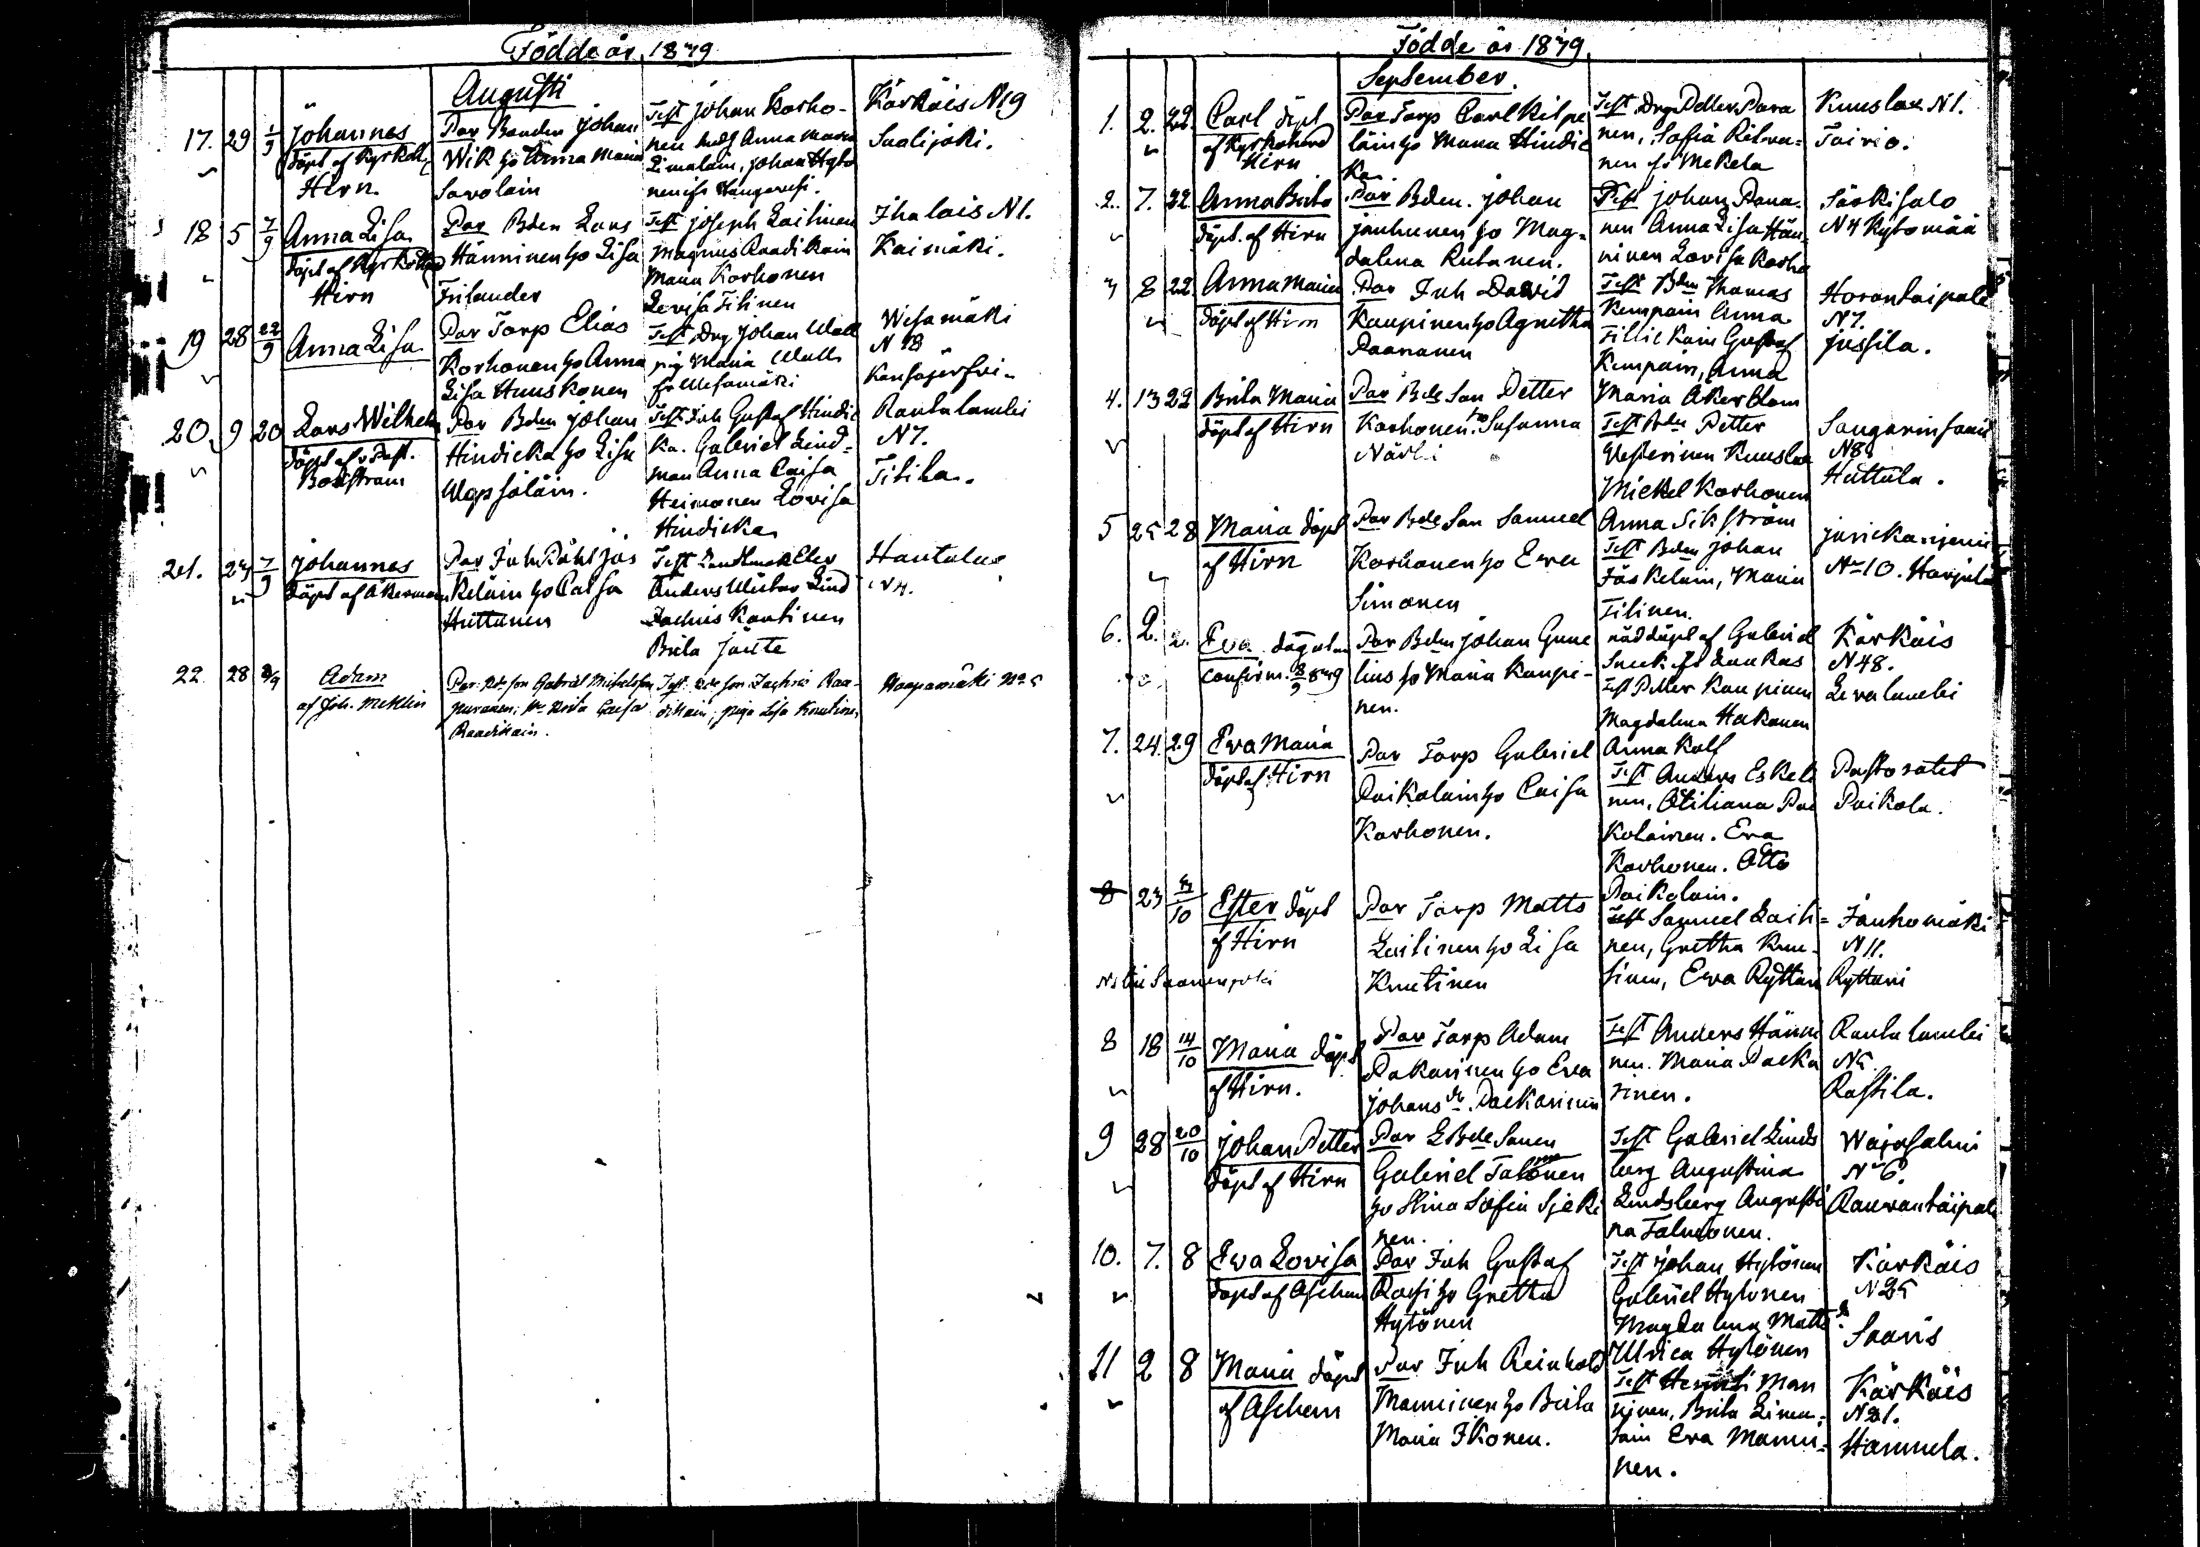 Födde år 1879
Augusti
17. 29 1/9 Johannes
döpt af Kyrkoh
Hirn.
Par Bonden Johan
Wik ho Anna Maria
Savolain
Test Johan Korho-
nen Anna Maria
Limalain, Johan Hytö
nen fr Hangaresi.
Kärkäis N19
Saalijoki.
18 5 7/9 Anna Lisa
döpt af Kyrkoh
Hirn
Par Bden Lars
Hänninen ho Lisa
Frilander
Test Joseph Laitinen
Magnus Raadikain
Maria Korhonen
Lovisa Tilinen
Ihalais N1.
Kaimäki.
19 28 22/9 Anna Lisa
Par Torp Elias
Korhonen ho Anna
Lisa Huuskonen
Test Drg Johan Wall
pig Maria Wall
fr Wesamäki
Wesamäki
N 18
20. 9 20 Lars Wilhelm
döpt af v Past.
Boxström
Par Bden Johan
Hindicka ho Lisa
Upsaläin.
Test Inh Gustaf Hindic
ka. Gabriel Lind=
man Anna Caisa
Heimonen Lovisa
Hindicka
Rautalambi
N7.
Tiliha.
21. 23 7/9 Johannes
döpt af Åkerman
Par Inh Påhl Jäs
keläin ho Caisa
Huttunen
Test
Anders Lind
Zachris Kautinen
Brita Jäste
Hautalax
N4.
22. 28 Adam
af Joh. Meklin
Par: Bde son Gabriel Michelsson
Puranen; ho Brita Caisa
Raadikain.
Test: Bde son Zachris Raa-
dikain; piga Lisa Knuutinen
Haapamäki No 5
Födde år 1879
September.
1. 2. 22. Carl döpt
af Kyrkoherd
Hirn
Par Torp Carl Kilpe
läin ho Maria Hindic
ka.
Test Drg Petter Para
nen, Sofia Ritva=
nen fr Mekela
Kuuslax N1.
Toivio.
2. 7. 22 Anna Brita
döpt. af Hirn
Par Bden. Johan
Jauhunen ho Mag=
dalena Rutanen.
Test Johan Pana
nen Anna Lisa Hän
ninen Lovisa Korho
Särkisalo
N4 Kytomää
3 8 22. Anna Maria
döpt af Hirn
Par Inh David
Kaupinen ho Agnetha
Paananen
Test Bden Thomas
Kempain Anna
Tillikain Gustaf
Kempain, Anna
Maria Åkerblom
Horontaipale
N7.
Jussila.
4. 13 22 Brita Maria
döpt af Hirn
Par Bde Son Petter
Korhonen. ho Susanna
Närhi
Test Bden Petter
Westerinen Kuuslax
Mickel Korhonen
Anna Sikström
Sangarinsaari
N8.
Huttula.
5 25 28 Maria döpt
af Hirn
Par Bde Son Samuel
Korhonen ho Eva
Simonen
Test Bden Johan
Jäskelain, Maria
Tilinen.
No 10. Harjula
6. 2. 2. Eva
confirm. 8/9 1879
Par Bden Johan Gune
lius ho Maria Kaupi-
nen.
nöddöpt af Gabriel
Test Petter Kaupinen
Magdalena Hakonen
Anna Rolf
Kärkäis
N48.
Levalambi
7. 24. 29 Eva Maria
döpt af Hirn
Par Torp Gabriel
Poikolain ho Caisa
Korhonen.
Test Anders Eskeli
nen, Otiliana Poi
kolainen. Eva
Korhonen. Otto
Poikolain.
Pastoratet
Poikola.
8 23 3/10 Ester döpt
af Hirn
Par Torp Matts
Laitinen ho Lisa
Knutinen
Test Samuel Laiti=
nen, Gretha Knu-
tinen, Eva Ryttari
Jauhomäki
N11.
Ryttari
8 18 14/10 Maria döpt
af Hirn.
Par Torp Adam
Pakarinen ho Eva
Johans dr. Packarinen
Test Anders Hänni
nen. Maria Packa
rinen.
Rautalambi
N5.
Rastila.
9 28 20/10 Johan Petter
döpt af Hirn
Par LBde Sonen
Gabriel Talonen
ho Stina Sofia Sjeki
nen.
Test Gabriel Linds
berg Augustina
Lindsberg Augusti
na Talmonen.
Wajosalmi
No 6.
Rauvantaipale
10. 7. 8 Eva Lovisa
döpt af Aschan
Par Inh Gustaf
Rossi ho Gretha
Hytönen
Test Johan Hytönen
Gabriel Hytönen
Magdalena Matts dr.
Ulrica Hytönen
Kärkäis
N25
Saaris
11 2 8 Maria döpt
af Aschan
Par Inh Reinhold
Manninen ho Brita
Maria Ikonen.
Test Hendri Man
ninen, Brita Limu=
tain Eva Manni=
nen.
Kärkäis
N21.
Hamula.